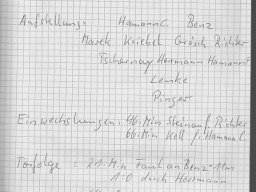 Aufstellung: Hamann C. Benz
Marek Kniebel Grösch Richter
Tschernay Hermann Hamann T
Lemke
Pinger
Einwechslungen: 46. Min Steinauf Richter
66. Min Kell f. Hamann C.
Torfolge: 21 Min Foul an Benz 11m
1:0 durch Hermann